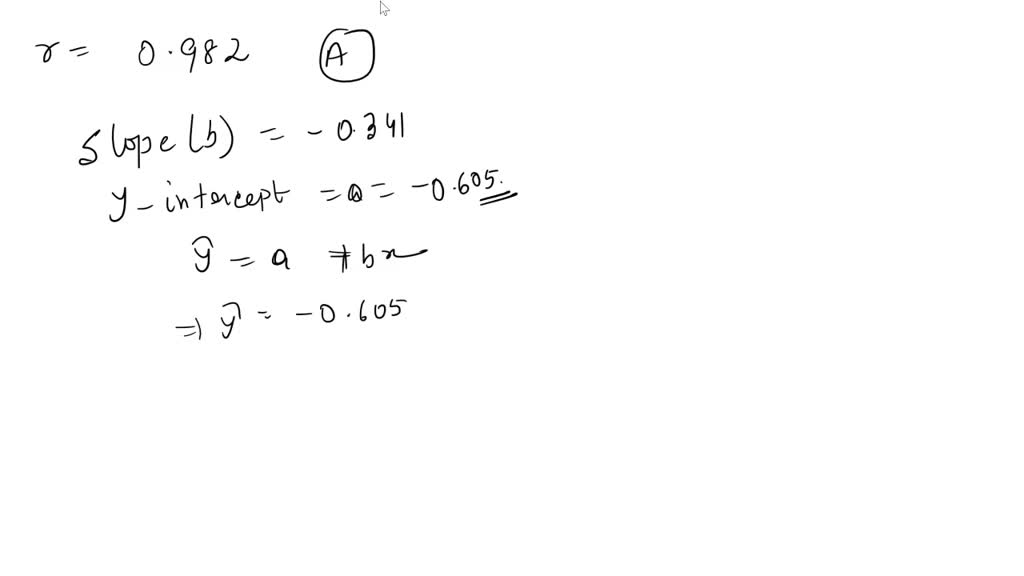 r = 0.982 A
Slope (b) = - 0.341
y - intercept = a = - 0.605.
ŷ = a + bx
⇒ ŷ = - 0.605